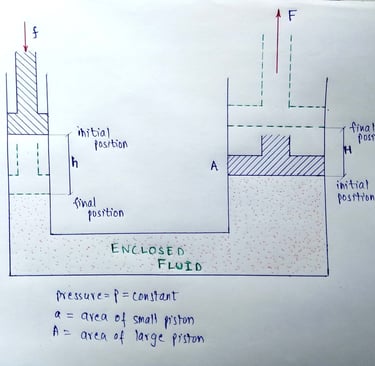 f
F
initial
position
h
final
position
A
final
position
H
initial
position
ENCLOSED
FLUID
pressure = P = constant
a = area of small piston
A = area of large piston